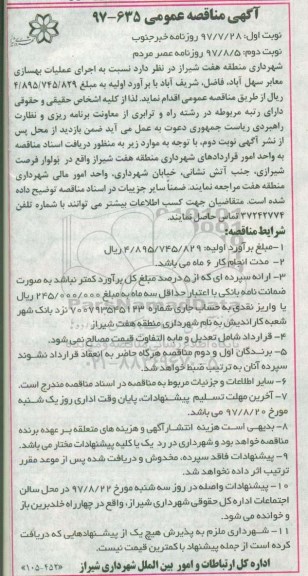 آگهی مناقصه عمومی ۶۳۵-۹۷
نوبت اول: ۹۷/۷/۲۸ روزنامه خبرجنوب
نوبت دوم: ۹۷/۸/۵ روزنامه عصر مردم
شهرداری منطقه هفت شیراز در نظر دارد نسبت به اجرای عملیات بهسازی
معابر سهل آباد، فاضل، شریف آباد با برآورد اولیه به مبلغ ۴/۸۹۵/۷۴۵/۸۲۹
ریال از طریق مناقصه عمومی اقدام نماید. لذا از کلیه اشخاص حقیقی و حقوقی
دارای رتبه مربوطه در رشته راه و ترابری از معاونت برنامه ریزی و نظارت
راهبردی ریاست جمهوری دعوت به عمل می آید ضمن بازدید از محل پس
از نشر آگهی نوبت دوم، با توجه به موارد زیر به منظور دریافت اسناد مناقصه
به واحد امور قراردادهای شهرداری منطقه هفت شیراز واقع در بولوار فرصت
شیرازی، جنب آتش نشانی، خیابان شهرداری، واحد امور مالی شهرداری
منطقه هفت مراجعه نمایند. ضمناً سایر جزییات در اسناد مناقصه توضیح داده
شده است. متقاضیان جهت کسب اطلاعات بیشتر می توانند با شماره تلفن
۳۷۲۴۲۷۷۴ تماس حاصل نمایند.
شرایط مناقصه:
۱-مبلغ برآورد اولیه: ۴/۸۹۵/۷۴۵/۸۲۹ ریال
۲- مدت انجام کار ۶ ماه می باشد.
۳- ارائه سپرده ای که از ۵ درصد مبلغ کل برآورد کمتر نباشد به صورت
ضمانت نامه بانکی با اعتبار حداقل سه ماه به مبلغ ۲۴۵/۰۰۰/۰۰۰ ریال
یا واریز نقدی به حساب جاری شماره ۷۰۰۷۹۳۵۴۵۱۲۳ نزد بانک شهر
شعبه کاراندیش به نام شهرداری منطقه هفت شیراز
۴- قرارداد شامل تعدیل و مابه التفاوت قیمت مصالح نمی شود.
۵- برندگان اول و دوم مناقصه هرگاه حاضر به انعقاد قرارداد نشوند
سپرده آنان به ترتیب ضبط خواهد شد.
۶- سایر اطلاعات و جزئیات مربوط به مناقصه در اسناد مناقصه مندرج است.
۷- آخرین مهلت تسلیم پیشنهادات، پایان وقت اداری روز یک شنبه
مورخ ۹۷/۸/۲۰ می باشد.
۸- بدیهی است هزینه انتشار آگهی و هزینه های متعلقه بر عهده برنده
مناقصه خواهد بود و شهرداری در رد یک یا کلیه پیشنهادات مختار می باشد.
۹- پیشنهادات فاقد سپرده، مخدوش و دریافت شده پس از موعد مقرر
ترتیب اثر داده نخواهد شد.
۱۰- پیشنهادات واصله در روز سه شنبه مورخ ۹۷/۸/۲۲ در محل سالن
اجتماعات اداره کل حقوقی شهرداری شیراز، واقع در چهارراه خلدبرین باز
و خوانده می شود.
۱۱- شهرداری ملزم به پذیرش هیچ یک از پیشنهادهایی که دریافت
کرده است از جمله پیشنهاد با کمترین قیمت نیست.
اداره کل ارتباطات و امور بین الملل شهرداری شیراز
«۱۰۵-۴۵۲»